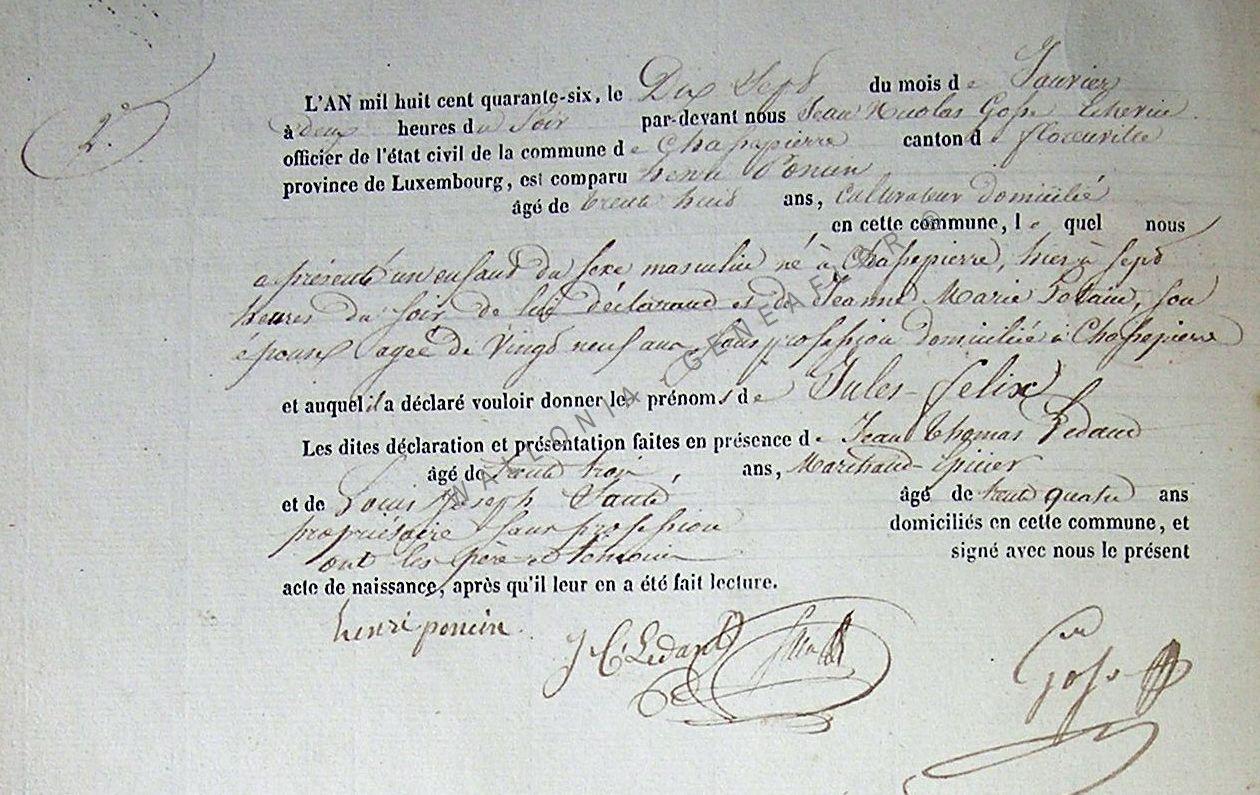 2.°
L'AN mil huit cent quarante-six, le Dix Sept du mois de Janvier
à deux heures du Soir par-devant nous Jean Nicolas Gosse Echevin
officier de l'état civil de la commune de Chassepierre canton de florenville
province de Luxembourg, est comparu henri Poncin
âgé de trente huit ans, Cultivateur Domicilié
en cette commune, le quel nous
a présenté un enfant du sexe masculin né à Chassepierre, hier à sept
heures du soir de lui déclarant et de Jeanne Marie son
épouse agée de Vingt neuf ans, sans profession domiciliée à Chassepierre
et auquel il a déclaré vouloir donner les prénoms de Jules-felix
Les dites déclaration et présentation faites en présence de Jean Thomas Ledant
âgé de trente trois ans, Marchand-Epicier
et de Louis Joseph âgé de trente quatre ans
propriétaire sans profession domiciliés en cette commune, et
ont les père et témoins signé avec nous le présent
acte de naissance, après qu'il leur en a été fait lecture.
henri poncin.
J T Ledant
Gosse
WALLONIA GENEAFOR ©